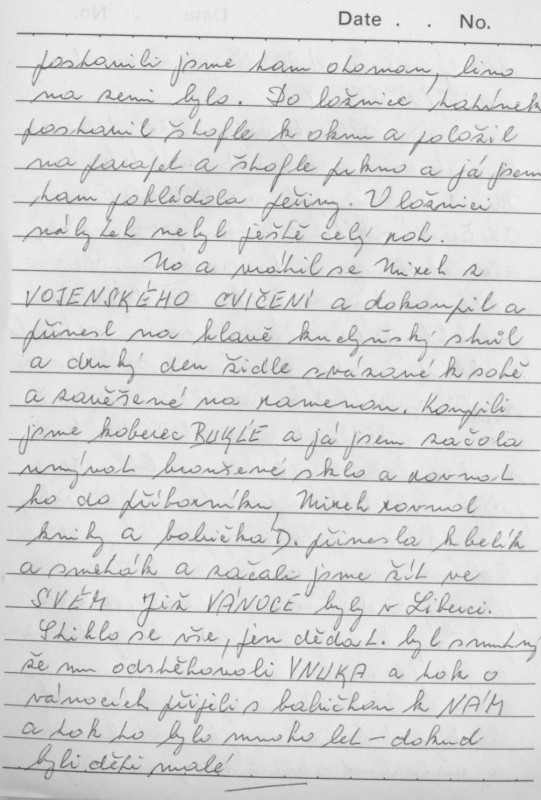 Date . . No.
postavili jsme tam otoman, lino
na zemi bylo. Do ložnice tatínek
postavil štafle k oknu a položil
na parapet a štafle prkno a já jsem
tam pokládala peřiny. V ložnici
nábytek nebyl ještě celý rok.
No a vrátil se Mirek z
VOJENSKÉHO CVIČENÍ a dokoupil a
přinesl na hlavě kuchyňský stůl
a druhý den židle svázané k sobě
a zavěšené na ramenou. Koupili
jsme koberec BUKLÉ a já jsem začala
umývat broušené sklo a rovnat
ho do příborníku, Mirek rovnal
knihy a babička D. přinesla kbelík
a smeták a začali jsme žít ve
SVÉM Již VÁNOCE byly v Liberci.
Stihlo se vše, jen děda L. byl smutný
že mu odstěhovali VNUKA a tak o
vánocích přijeli s babičkou k NÁM
a tak to bylo mnoho let – dokud
byli děti malé